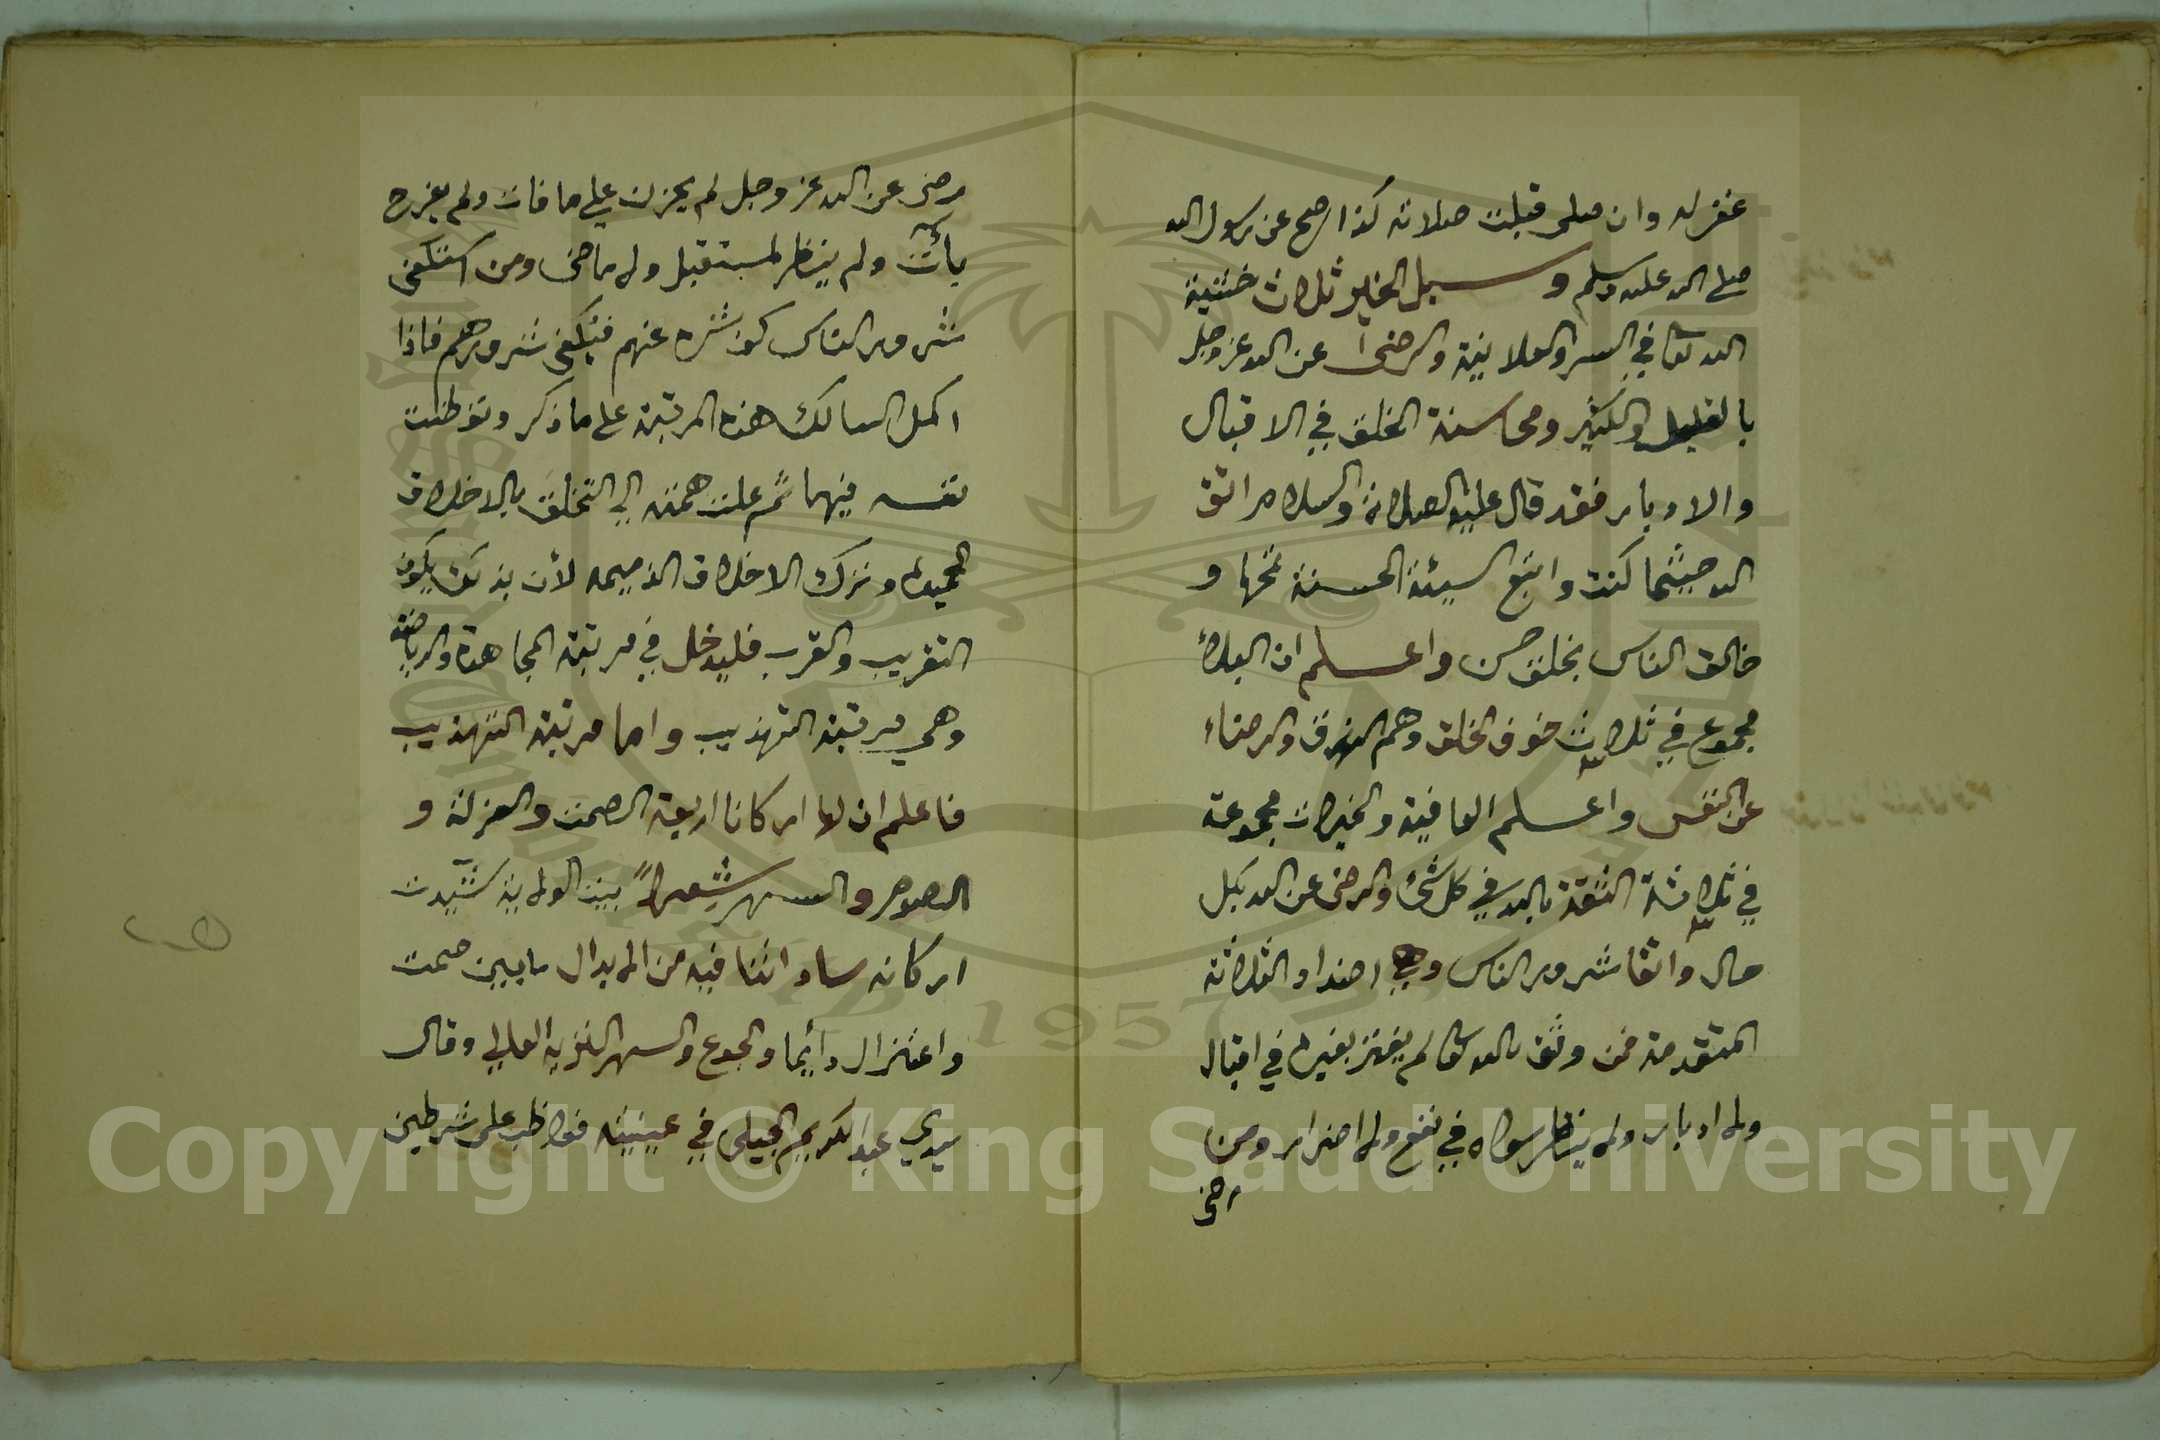 غفر له وان صلى قبلت صلاته كذا صح عن رسول الله
صلى الله عليه وسلم و سبل الخاير ثلاث خشية
الله تعا في السر والعلانية والرضى عن الله عز وجل
بالقليل والكثير ومحاسنة الخلق في الاقبال
والادبار فقد قال عليه الصلاة والسلام اتق
الله حيثما كنت واتبع السيئة الحسنة تمحها و
خالق الناس بخلق حسن واعلم ان البلاء
مجموع في ثلاث خوف الخلق وهم الرزق والرضاء
عن النفس واعلم العافية والخيرات مجموعة
في ثلاثة الثقة بالله في كل شئ والرضى عن الله بكل
حال واتقا شرور الناس وهي اضداد الثلاثة
المتقدمة فمن وثق بالله تعا لم يغتر بغيره في اقبال
ولا ادبار ولا ينظر سواه في نفع ولا اضرار ومن
رضى
رضى عن الله عز وجل لم يحزن على ما فات ولم يفرح
بآت ولم ينظر لمستقبل ولا ماضى ومن استكفى
شرور الناس كف شره عنهم فيكفى شرورهم فاذا
اكمل السالك هذه المرتبة على ما ذكر وتوطنت
نفسه فيها ثم علت همته الى التخلق بالاخلاق
الحميده وترك الاخلاق الذميمه لأن بذلك يكون
التقريب والقرب فليدخل في مرتبة المجاهدة والرياضة
وهي مرتبة التهذيب واما مرتبة التهذيب
فاعلم ان لها اركانا اربعة الصمت والعزلة و
الصوم والسهر شعرا بيت الولاية شيدت
اركانه ساداتنا فيه من الابدال ما بين صمت
واعتزال دائما والجوع والسهر النزيه العالي وقال
سيدي عبد الكريم الجيلى في عينيته فواظب على شرطين
Copyright © King Saud University
1957